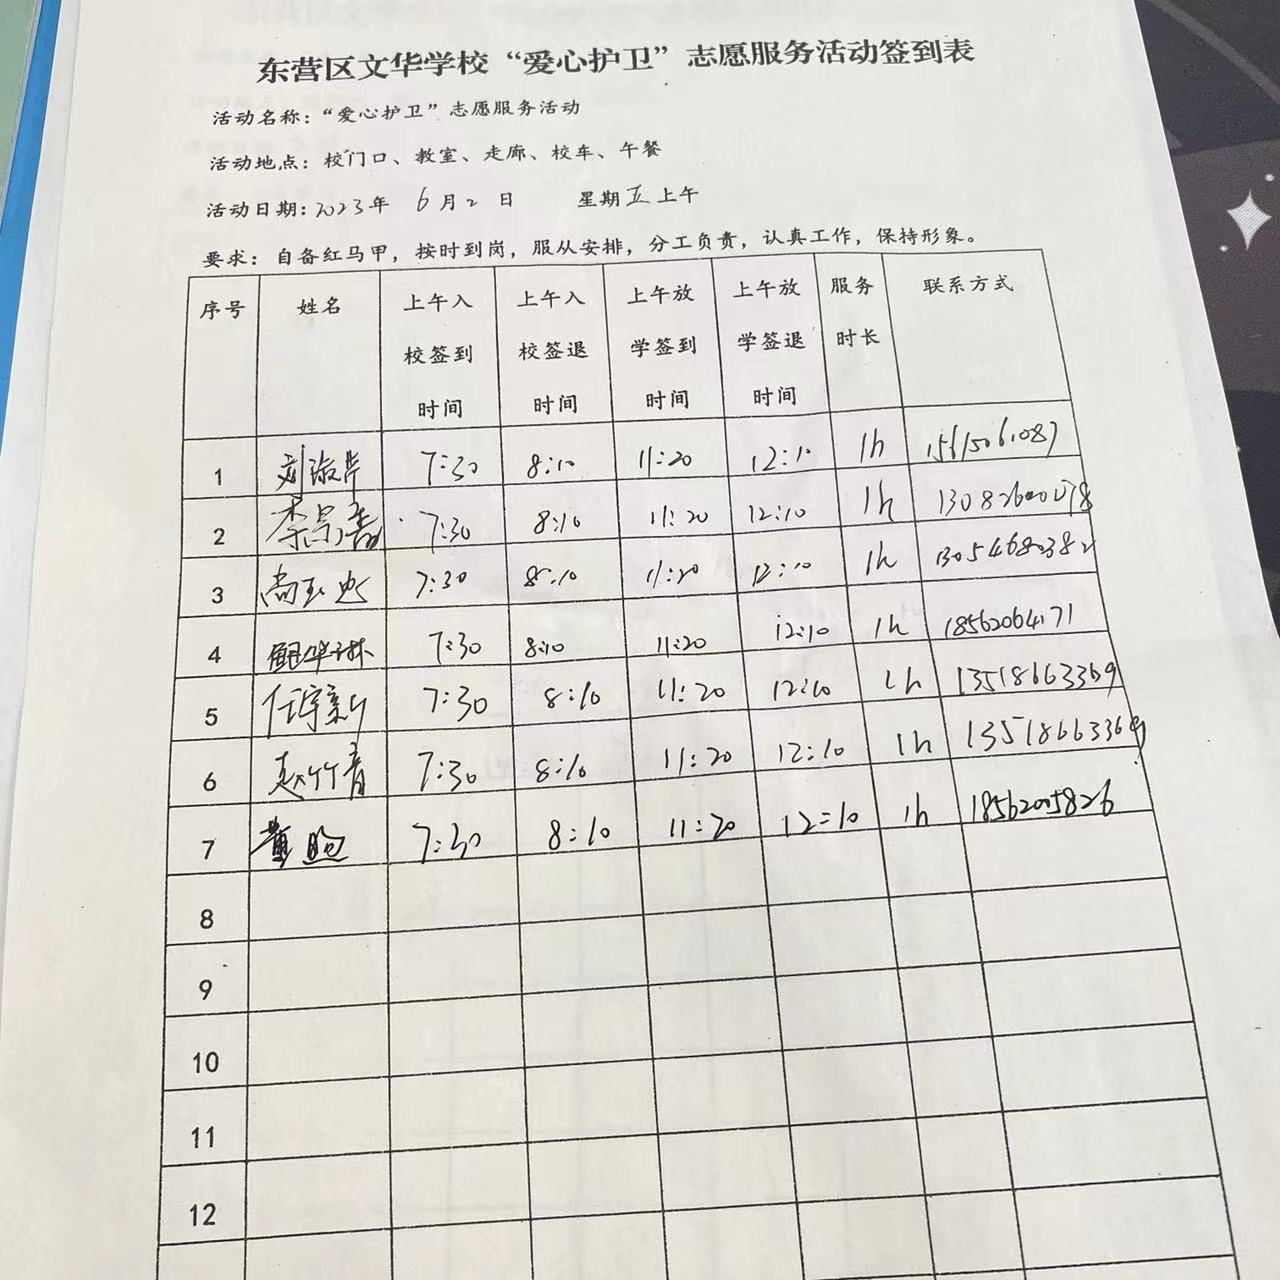 东营区文华学校“爱心护卫”志愿服务活动签到表
活动名称：“爱心护卫”志愿服务活动
活动地点：校门口、教室、走廊、校车、午餐
活动日期：2023年 6月2日 星期五上午
要求：自备红马甲，按时到岗，服从安排，分工负责，认真工作，保持形象。
序号 姓名 上午入校签到时间 上午入校签退时间 上午放学签到时间 上午放学签退时间 服务时长 联系方式
1 刘淑芹 7:30 8:10 11:20 12:10 1h 15615061087
2 7:30 8:10 11:20 12:10 1h
3 7:30 8:10 11:20 12:10 1h 13054682382
4 7:30 8:10 11:20 12:10 1h 18562064171
5 任宇新 7:30 8:10 11:20 12:10 1h 13518663369
6 赵竹青 7:30 8:10 11:20 12:10 1h 13518663369
7 7:30 8:10 11:20 12:10 1h 18562005826
8
9
10
11
12